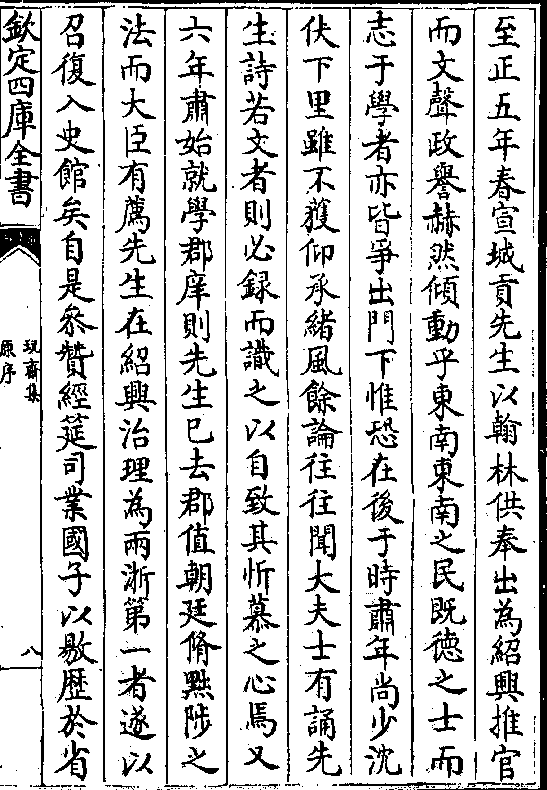 至正五年春宣城貢先生以翰林供奉出為紹興推官
而文聲政譽赫然傾動乎東南東南之民既德之士而
志于學者亦皆爭出門下惟恐在後于時肅年尚少沈
伏下里雖不獲仰承緒風餘論往往聞大夫士有誦先
生詩若文者則必録而識之以自致其忻慕之心焉又
六年肅始就學郡庠則先生已去郡值朝廷脩黜陟之
法而大臣有薦先生在紹興治理為兩浙第一者遂以
召復入史館矣自是叅贊經筵司業國子以敭歴於省
欽定四庫全書
玩齋集
原序
八